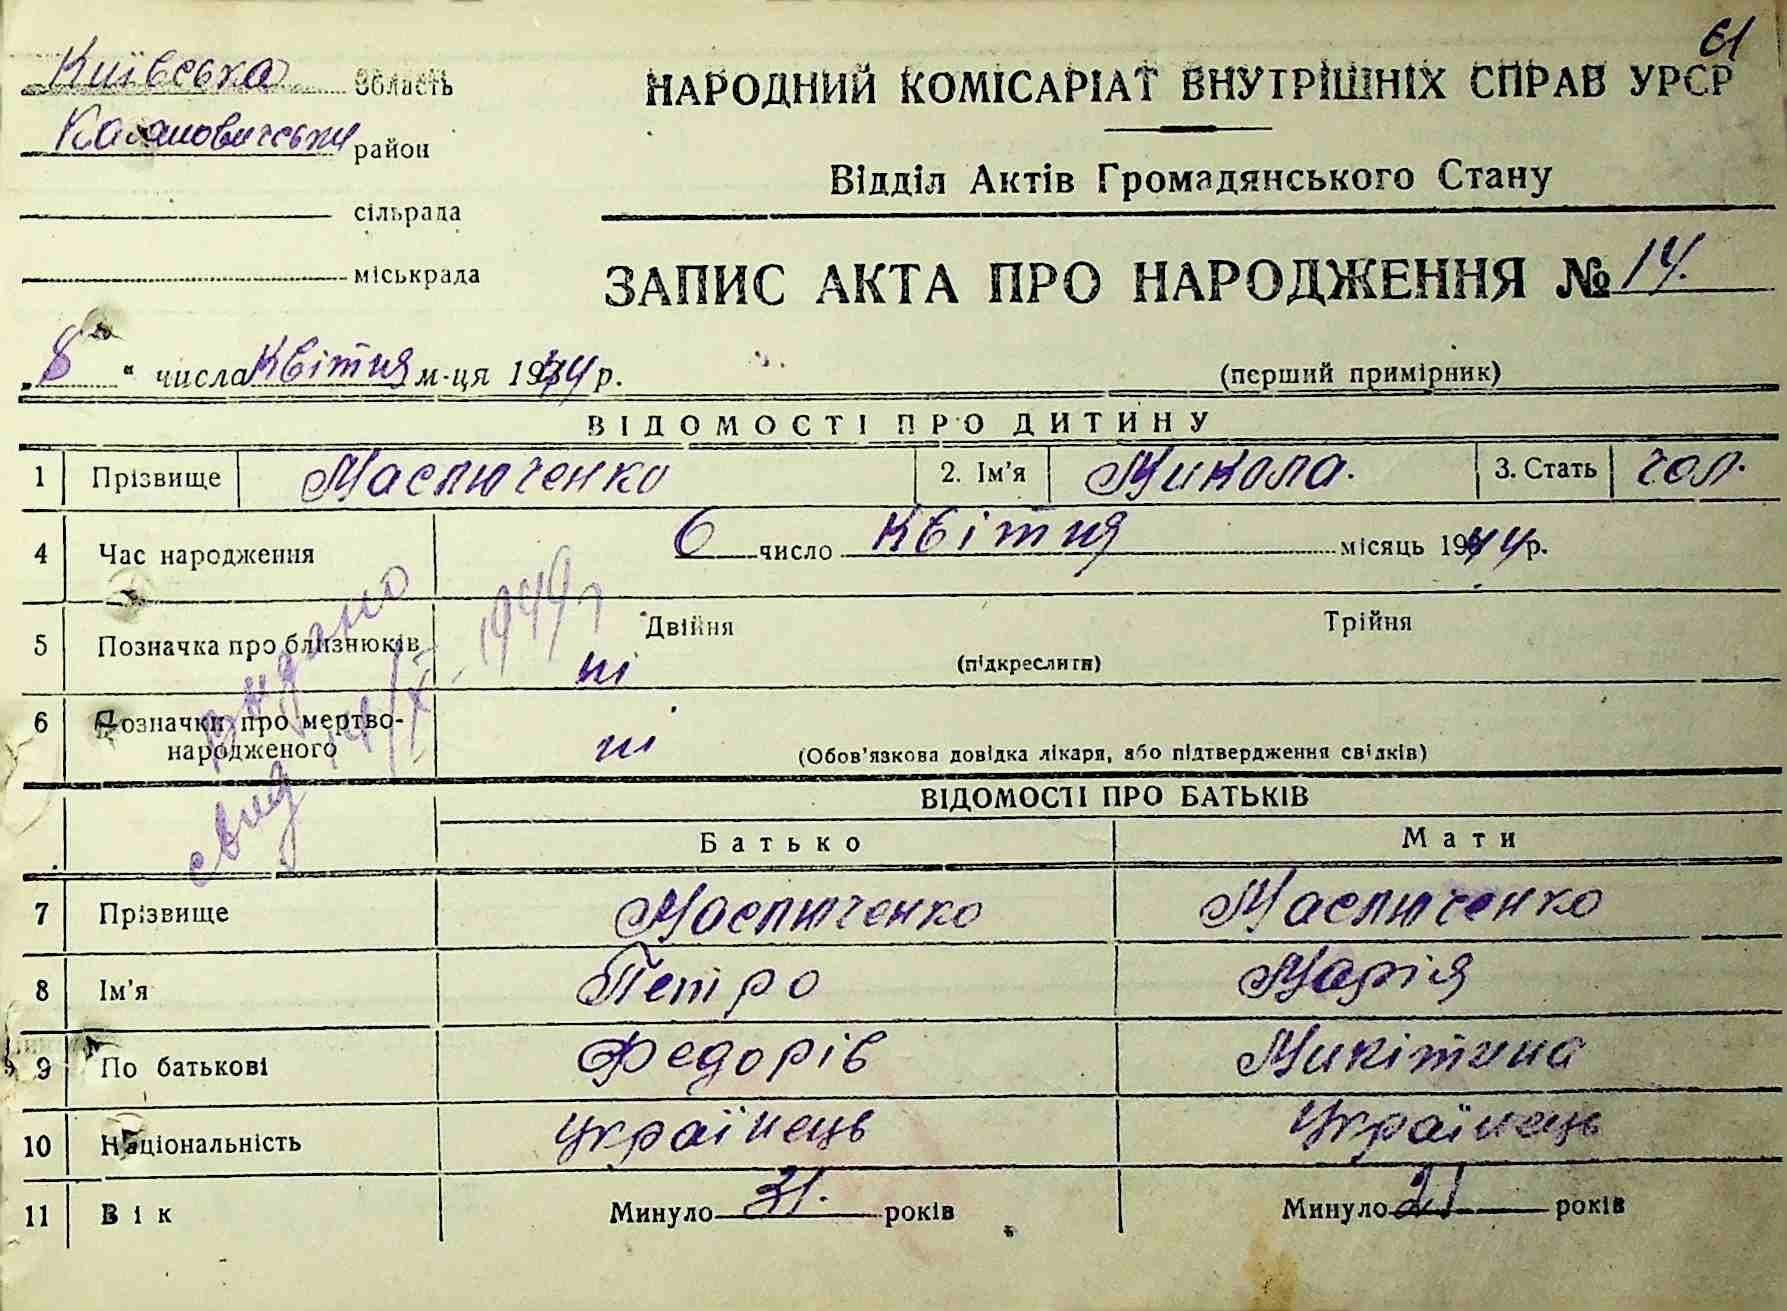 61
Київська область
Кагановичський район
сільрада
міськрада
НАРОДНИЙ КОМІСАРІАТ ВНУТРІШНІХ СПРАВ УРСР
Відділ Актів Громадянського Стану
ЗАПИС АКТА ПРО НАРОДЖЕННЯ № 14.
„8“ числа квітня м-ця 1944 р.
(перший примірник)
ВІДОМОСТІ ПРО ДИТИНУ
1 Прізвище Маслюченко 2. Ім'я Микола. 3. Стать чол.
4 Час народження 6 число квітня місяць 1944 р.
5 Позначка про близнюків Двійня ні (підкреслити) Трійня
6 Позначки про мертво-
народженого ні (Обов'язкова довідка лікаря, або підтвердження свідків)
Видано
свид 1949 г
ВІДОМОСТІ ПРО БАТЬКІВ
Батько Мати
7 Прізвище Маслюченко Маслюченко
8 Ім'я Петро Марія
9 По батькові Федорів Микітина
10 Національність Українець Українець
11 Вік Минуло 31. років Минуло 21 років